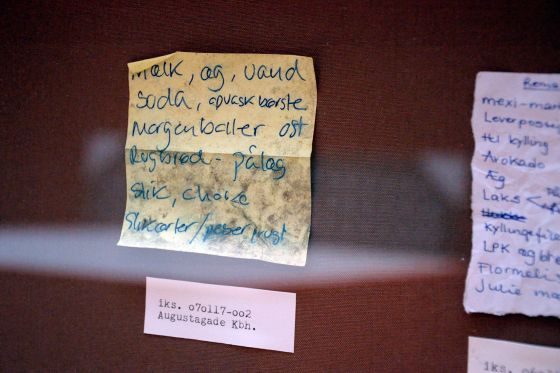 mælk, æg, vand
Soda, opvaskbørste
morgenboller ost
Rugbrød - pålæg
slik, choko
Slikærter/peberfrugt
iks. o7o117-oo2
Augustagade Kbh.
mexi-
Leverposte
Hl kylling
Avokado
Æg
Laks
Kyllingefil
LPK
Flormeli
Julie
iks.